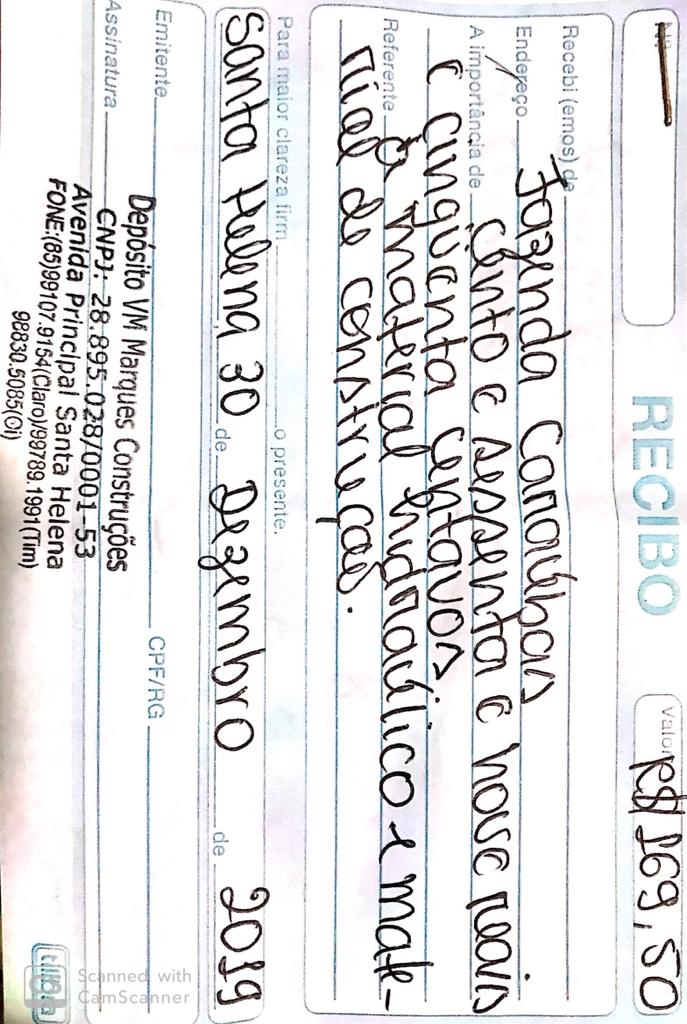 Nº
RECIBO
Valor R$ 169,50
Recebi (emos) de
Endereço Fazenda Canaúbas
A importância de Cento e sessenta e nove reais
e cinqüenta centavos
Referente a material hidraúlico e mate-
rial de construção.
Para maior clareza firm o presente.
Santa Helena, 30 de Dezembro de 2019
Emitente CPF/RG
Assinatura
Depósito VM Marques Construções
CNPJ: 28.895.028/0001-53
Avenida Principal Santa Helena
FONE:(85)99107.9154(Claro)/99789.1991(Tim)
98830.5085(Oi)
tilibra
Scanned with
CamScanner